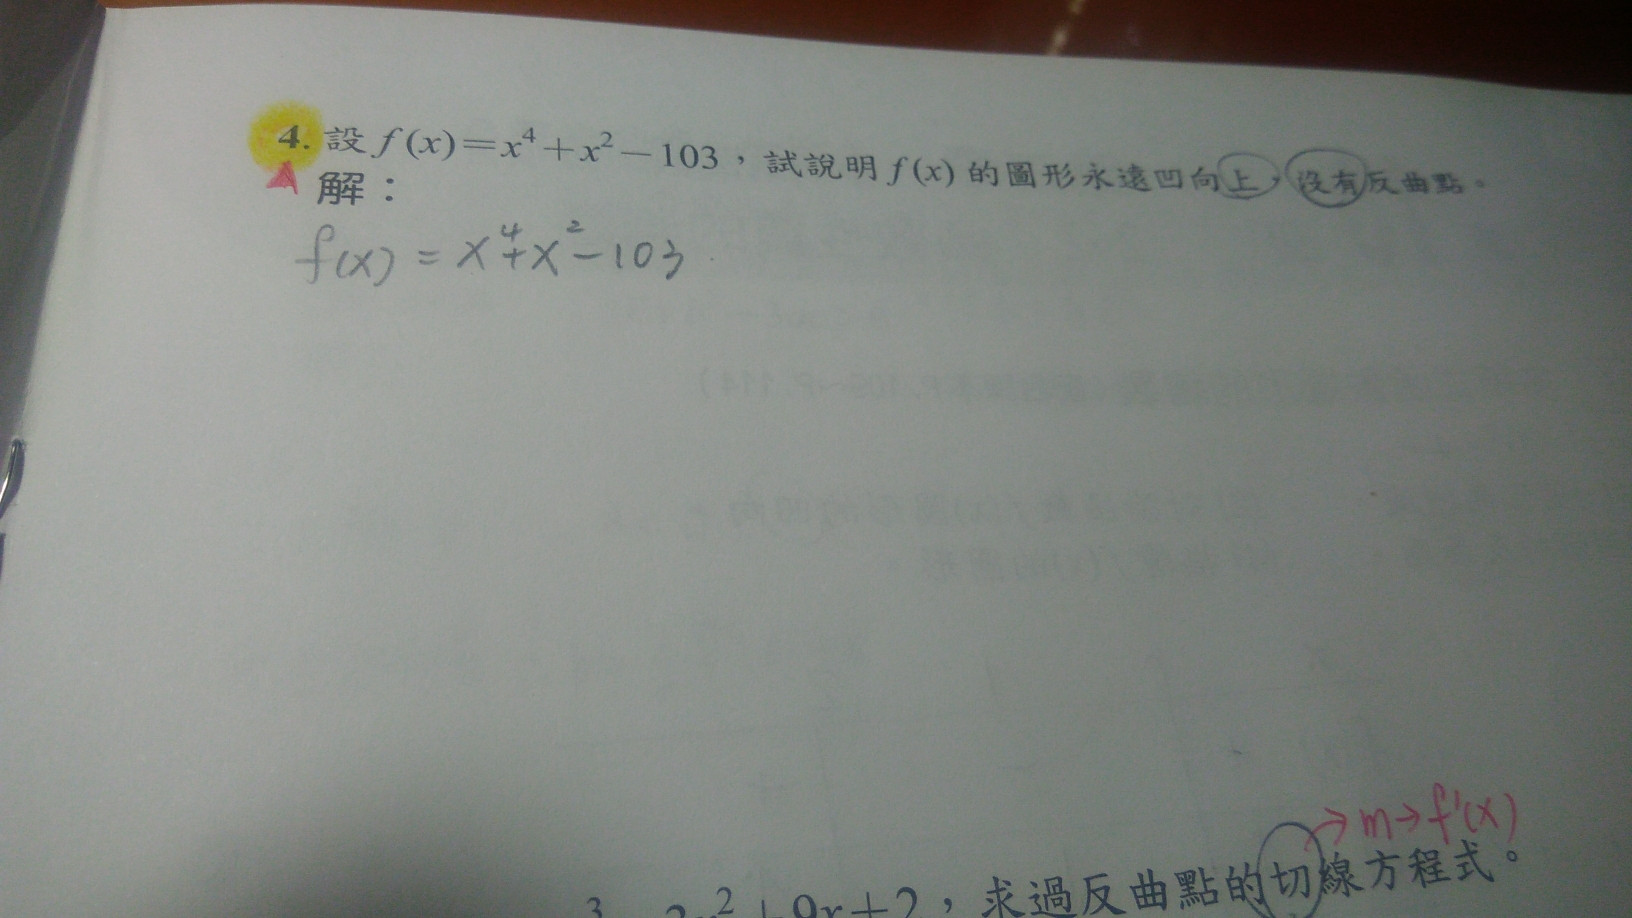 4. 設 f(x)=x⁴+x²−103，試說明 f(x) 的圖形永遠凹向上，沒有反曲點。
解：
f(x) = x⁴+x²−103
→ m → f'(x)
²+9x+2，求過反曲點的切線方程式。